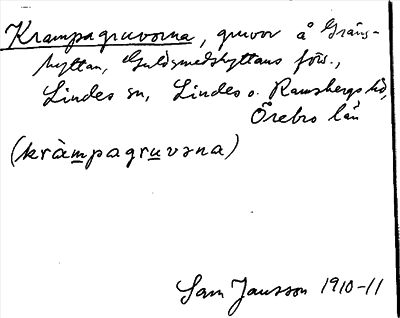 Krampagruvorna, gruvor å Gräns-
hyttan, Guldsmedshyttans förs.,
Lindes sn, Lindes o. Ramsbergs hd,
Örebro län
(kràmpagruvəna)
Sam Jansson 1910-11